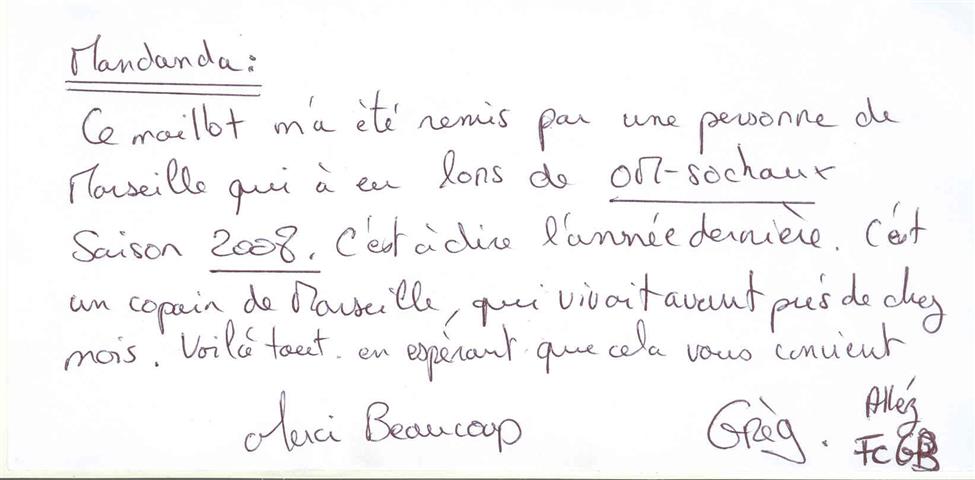 Mandanda :
Ce maillot m'a été remis par une personne de
Marseille qui à eu lors de OM-Sochaux
Saison 2008. C'est à dire l'année dernière. C'est
un copain de Marseille, qui vivait avant près de chez
mois. Voilà tout. en espérant que cela vous convient
Merci Beaucoup Grèg. Alléz
FCGB